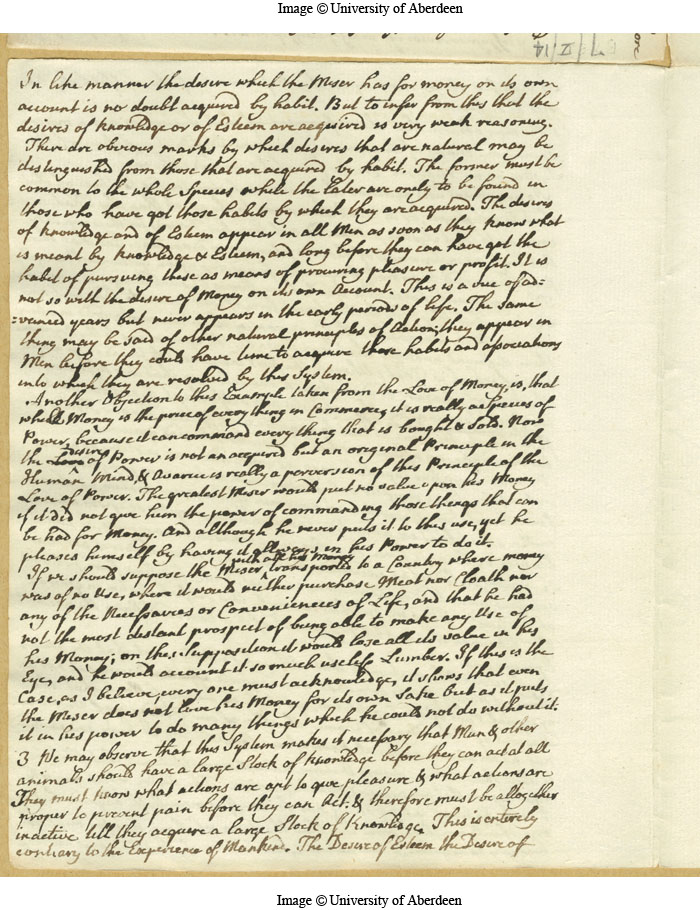 Image © University of Aberdeen
7/II/14
In like manner the desire which the Miser has for money on its own
account is no doubt acquired by habit. But to infer from this that the
desires of Knowledge or of Esteem are acquired is very weak reasoning.
There are obvious marks by which desires that are natural may be
distinguished from those that are acquired by habit. The former must be
common to the whole Species while the later are onely to be found in
those who have got those habits by which they are acquired. The desires
of Knowledge and of Esteem appear in all Men as soon as they know what
is meant by Knowledge & Esteem, and long before they can have got the
habit of pursuing these as means of procuring pleasure or profit. It is
not so with the desire of Money on its own Account. This is a vice of ad=
=vanced years but never appears in the early periods of life. The same
thing may be said of other natural principles of Action; they appear in
Men before they could have time to acquire those habits and associations
into which they are resolved by this System.
Another Objection to this Example taken from the Love of Money, is, that
while Money is the price of every thing in Commerce, it is really a Species of
Power, because it can command every thing that is bought & sold. Now
the Love desire of Power is not an acquired but an original Principle in the
Human Mind, & Avarice is really a perversion of this Principle of the
Love of Power. The greatest Miser would put no value upon his Money
if it did not give him the power of commanding those things that can
be had for Money. And although he never puts it to this use, yet he
pleases himself by having it allways in his Power to do it.
If we should suppose the Miser with all his Money transported to a Country where money
was of no Use, where it would neither purchase Meat nor Cloath nor
any of the Necessaries or Conveniences of Life, and that he had
not the most distant prospect of being able to make any Use of
his Money; on this Supposition it would lose all its value in his
Eye, and he would account it so much useless Lumber. If this is the
Case, as I believe every one must acknowledge, it shows that even
the Miser does not love his Money for its own sake but as it puts
it in his power to do many things which he could not do without it.
3 We may observe that this System makes it necessary that Man & other
animals should have a large Stock of Knowledge before they can act at all
They must know what actions are apt to give pleasure & what actions are
proper to prevent pain before they can Act. & therefore must be alltogether
inactive till they acquire a large Stock of Knowledge. This is entirely
contrary to the Experience of Mankind. The Desire of Esteem the Desire of
Image © University of Aberdeen